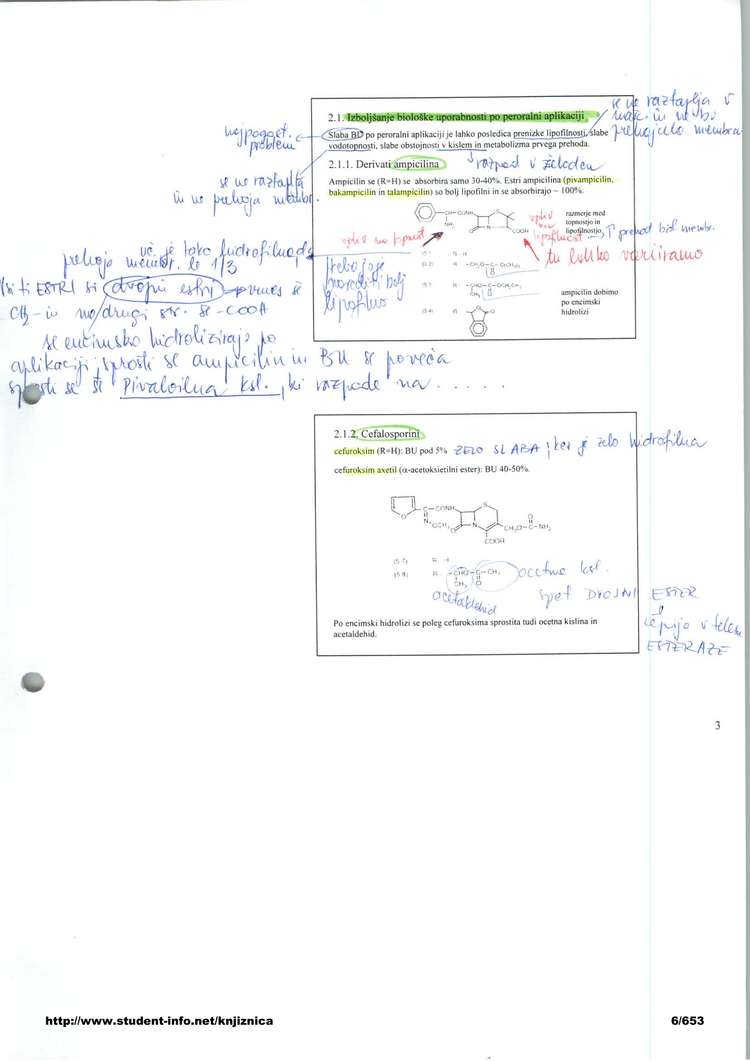 se ne raztaplja v
maš. in ne bo
prehajalo membra
2.1. Izboljšanje biološke uporabnosti po peroralni aplikaciji
najpogost.
problem
Slaba BU po peroralni aplikaciji je lahko posledica prenizke lipofilnosti, slabe
vodotopnosti, slabe obstojnosti v kislem in metabolizma prvega prehoda.
2.1.1. Derivati ampicilina
razpad v želodcu
se ne raztaplja
in ne prehaja membr.
Ampicilin se (R=H) se absorbira samo 30-40%. Estri ampicilina (pivampicilin,
bakampicilin in talampicilin) so bolj lipofilni in se absorbirajo ~ 100%.
CH-CONH
NH₂
COOH
vpliv na topnost
vpliv
na
lipofilnost
razmerje med
topnostjo in
lipofilnostjo
↑ prehod biol. membr.
tu lahko variiramo
prehaja membr. le 1/3
treba jo je
narediti bolj
lipofilno
ampicilin dobimo
po encimski
hidrolizi
ti ESTRI so dvojni estri
CH₂- in na drugi str. je -COOH
se encimsko hidrolizirajo po
aplikaciji, sprosti se ampicilin in BU se poveča
sprosti se še Pivaloilna ksl., ki razpade na . . . . . .
2.1.2. Cefalosporini
cefuroksim (R=H): BU pod 5% ZELO SLABA, ker je zelo hidrofilna
cefuroksim axetil (α-acetoksietilni ester): BU 40-50%.
C-CONH
S
N
OCH₃
O
CH₂O-C-NH₂
COOH
ocetna ksl.
acetaldehid
spet DVOJNI ESTER
cepijo v telesu
ESTERAZE
Po encimski hidrolizi se poleg cefuroksima sprostita tudi ocetna kislina in
acetaldehid.
3
http://www.student-info.net/knjiznica
6/653